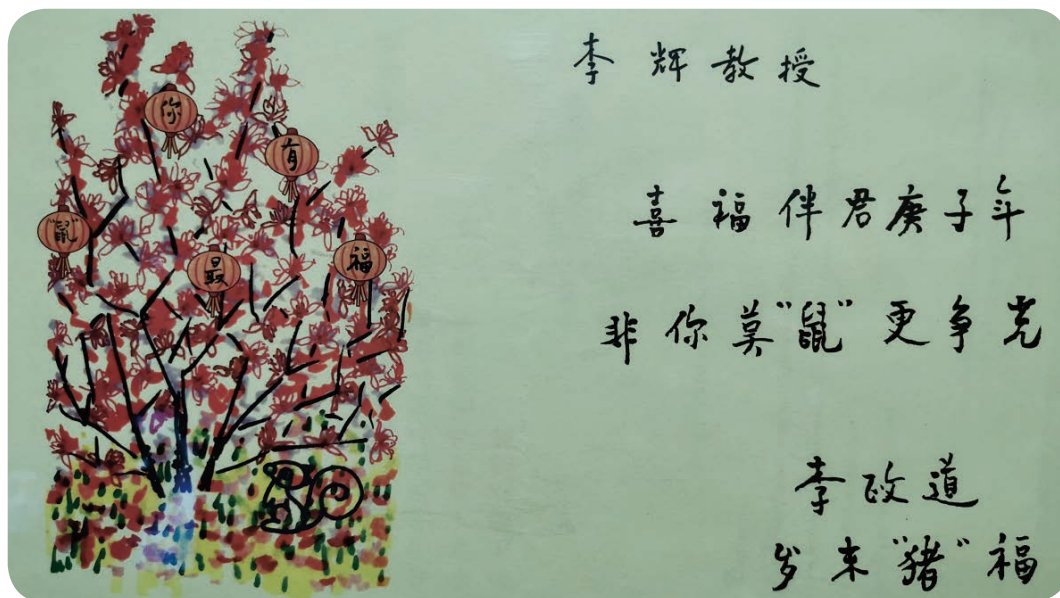 你
有
"鼠"
最
福
李辉教授
喜福伴君庚子年
非你莫"鼠"更争光
李政道
岁末"猪"福